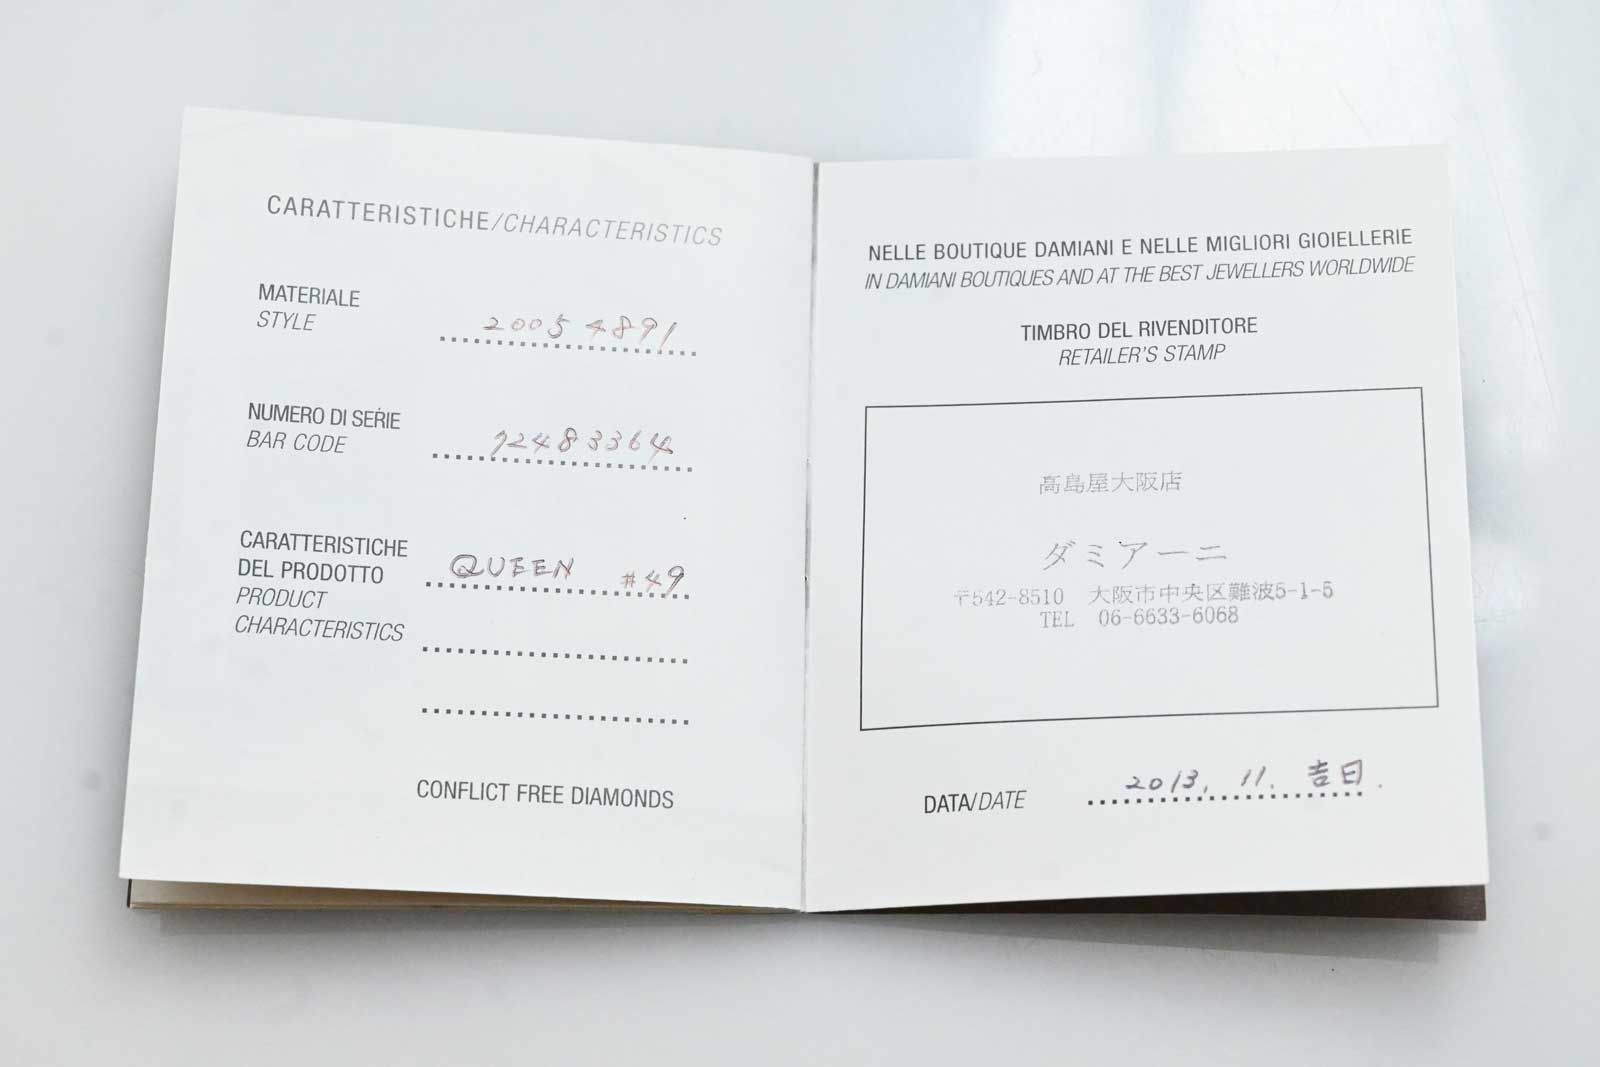 CARATTERISTICHE/CHARACTERISTICS
MATERIALE
STYLE
20054891
NUMERO DI SERIE
BAR CODE
72483364
CARATTERISTICHE
DEL PRODOTTO
PRODUCT
CHARACTERISTICS
QUEEN #49
CONFLICT FREE DIAMONDS
NELLE BOUTIQUE DAMIANI E NELLE MIGLIORI GIOIELLERIE
IN DAMIANI BOUTIQUES AND AT THE BEST JEWELLERS WORLDWIDE
TIMBRO DEL RIVENDITORE
RETAILER'S STAMP
高島屋大阪店
ダミアーニ
〒542-8510 大阪市中央区難波5-1-5
TEL 06-6633-6068
DATA/DATE 2013. 11. 吉日.